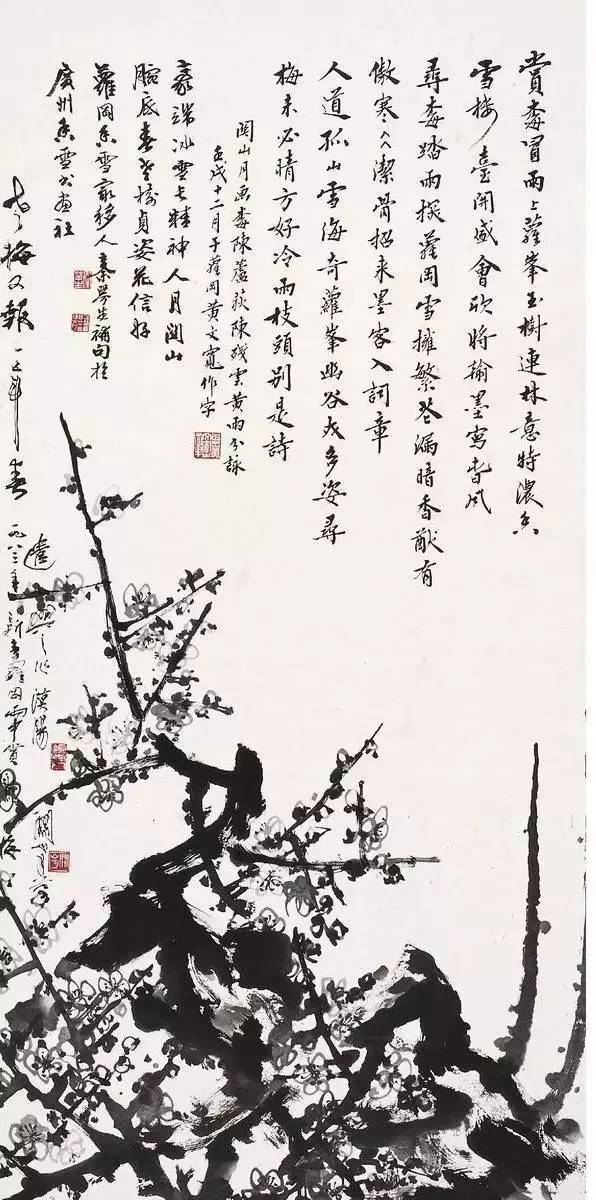 賞梅冒雨上蘿峯玉樹連林意特濃香
雪樓臺開盛會欣將翰墨寫春風
尋梅踏雨探蘿岡雪擁繁花漏暗香猷有
傲寒冰潔骨招來墨客入詞章
人道孤山雪海奇蘿峯幽谷尤多姿尋
梅未必晴方好冷雨枝頭別是詩
関山月画梅陳蘆荻陳殘雲黃雨分詠
壬戌十二月于蘿岡黃文寬作字
豪端冰雪長精神人月関山
腕底春 樹貞姿花信好
蘿岡香雪最移人秦咢生補句於
廣州香雪書畫社
老梅又報一年春
一九八三年新春蘿岡雨中賞
関山月